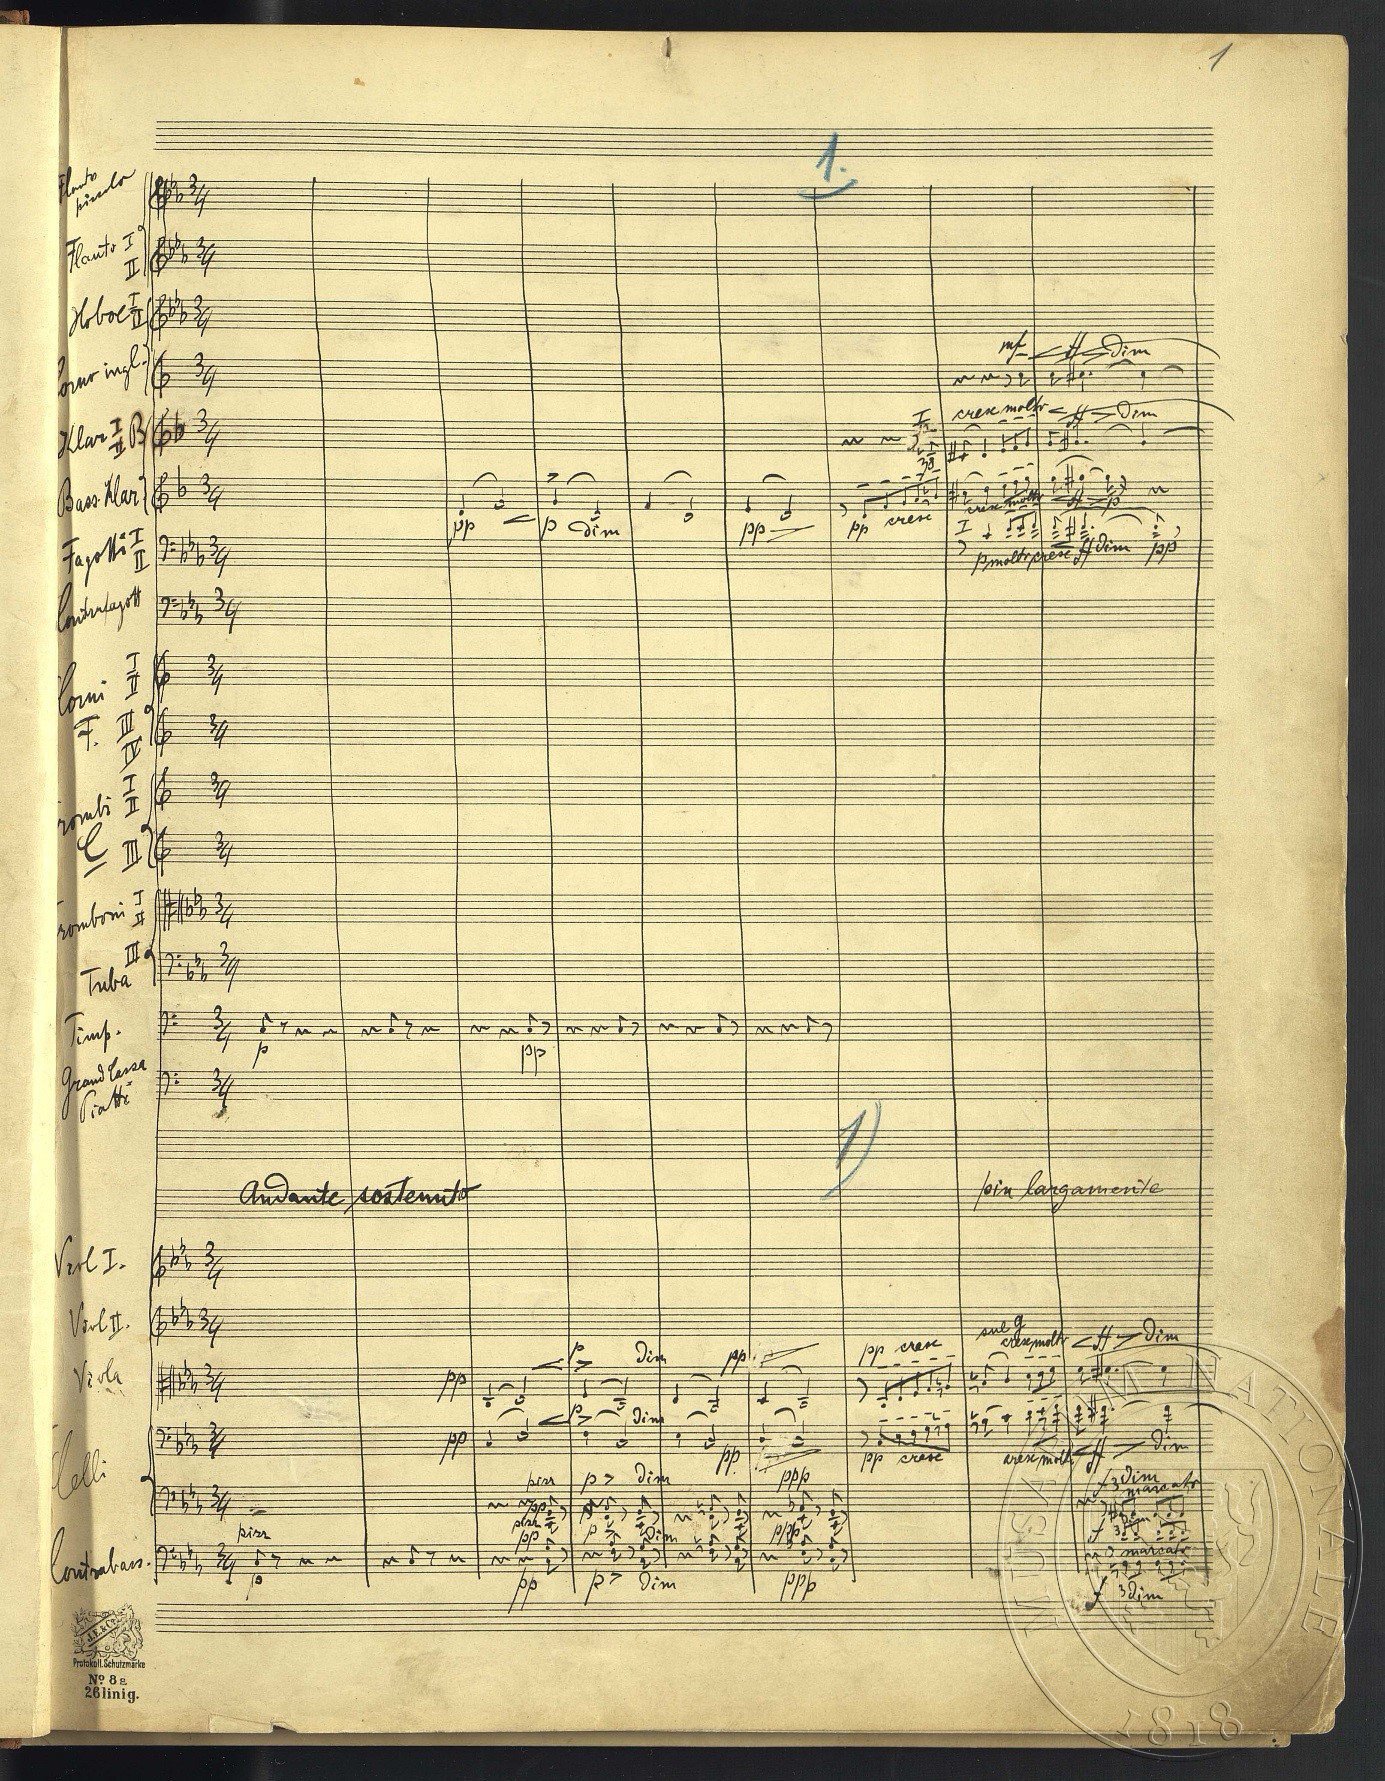 1
1.
Flauto
piccolo
Flauto I
II
Hoboe I
II
Corno ingl.
mf ff dim
Klar I
II B
I
cresc molto ff dim
Bass Klar
pp p dim pp pp cresc cresc molto ff p
Fagotti I
II
I
p molto cresc ff dim pp
Contrafagott
Corni I
II
F. III
IV
Trombi I
II
C III
Tromboni I
II
III
Tuba
Timp.
p pp
Grand Cassa
Piatti
1)
Andante sostenuto
piu largamente
Viol I.
Viol II.
Viola
pp p dim pp pp cresc sul g cresc molto ff dim
Celli
pp p dim pp pp cresc cresc molto ff dim
pizz p dim ppp f 3 dim
marcato
pp pizz
pp p dim ppp f 3
Contrabass.
pizz marcato
p pp p dim ppp f 3 dim
J.E. & Co.
Protokoll. Schutzmarke
No. 8a
26linig.
MUSAEUM NATIONALE
1818